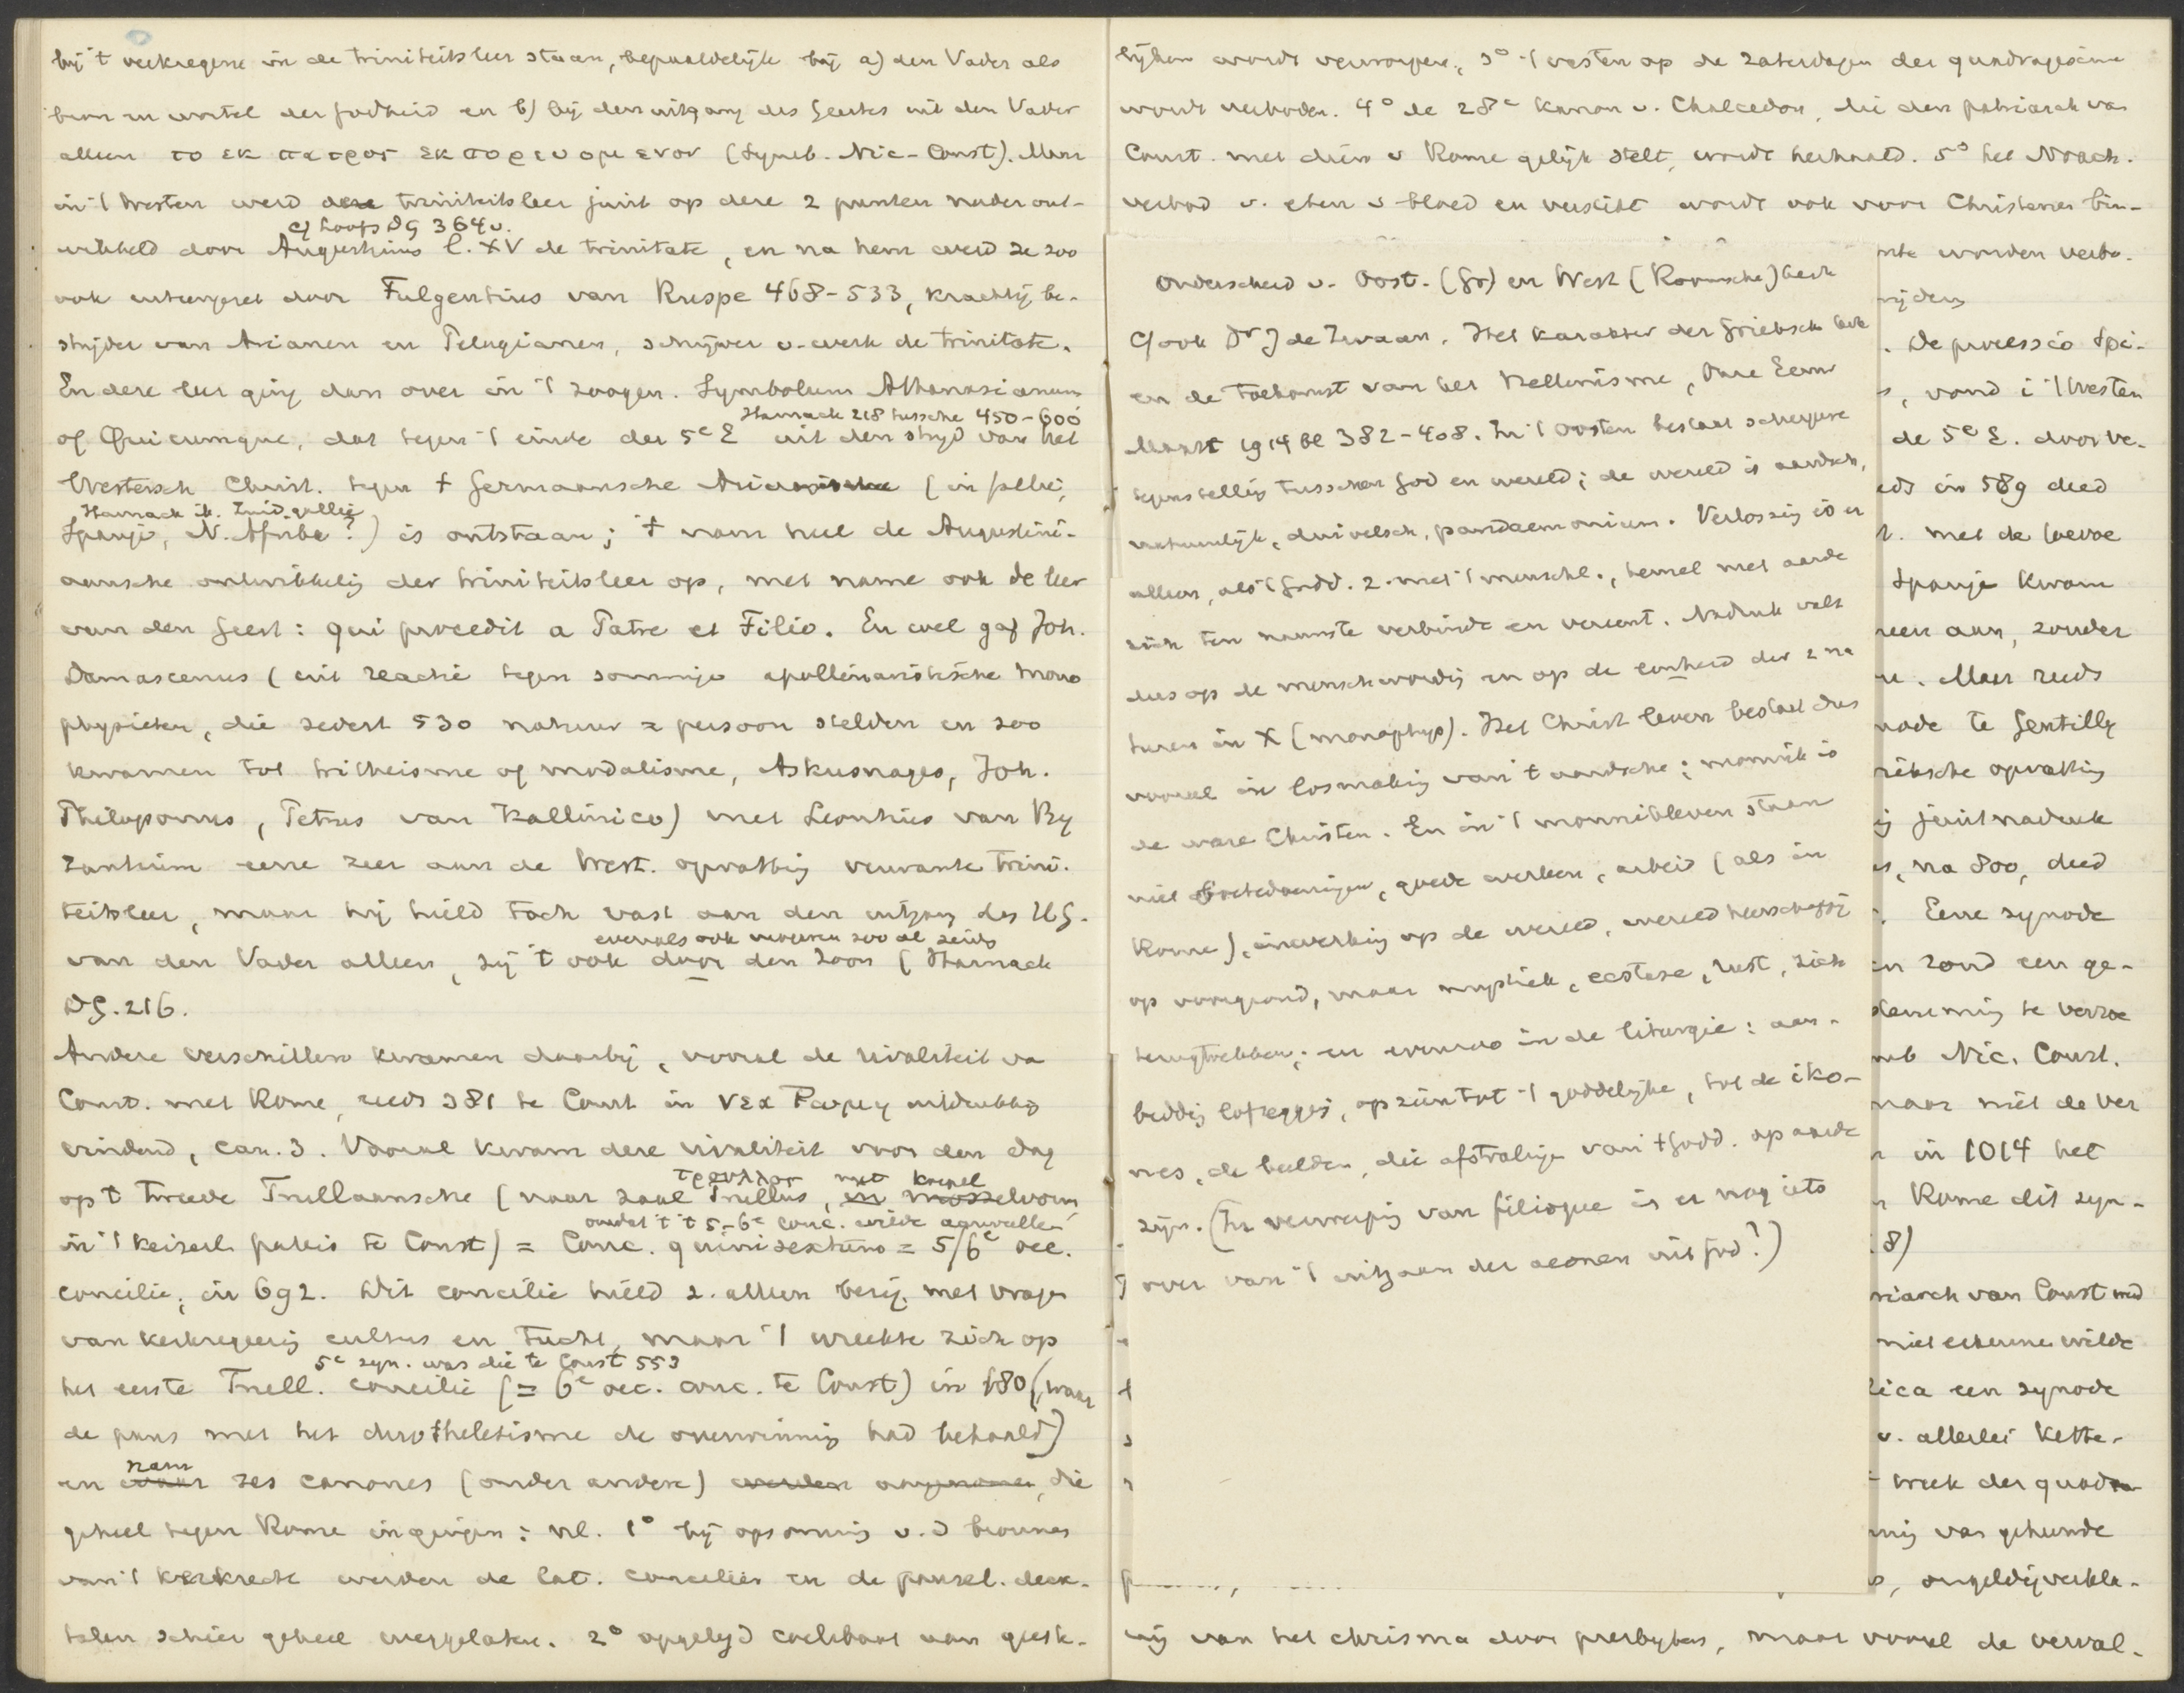 bij 't verkregene in de triniteitsleer staan, bepaaldelijk bij a) den Vader als
bron en wortel der godheid en b) bij den uitgang des Geestes uit den Vader
alleen το εκ πατρος εκπορευομενον (Symb. Nic-Const). Maar
in 't Westen werd deze triniteitsleer juist op deze 2 punten nader ont-
cf Loofs DG 364v.
wikkeld door Augustinus l. XV de trinitate, en na hem werd ze zoo
ook voorgezet door Fulgentius van Ruspe 468-533, krachtig be-
strijder van Arianen en Pelagianen, schrijver v. werk de trinitate.
En deze leer ging dan over in 't zoogen. Symbolum Athanasianum
Harnack 218 tussche 450-600
of Quicumque, dat tegen 't einde der 5e E uit den strijd van het
Westersch Christ. tegen t Germaansche Arianisme (in Gallië,
Harnack ib. Zuid-gallie
Spanje, N. Afrika?) is ontstaan; 't nam heel de Augustini-
aansche ontwikkelig der triniteitsleer op, met name ook de leer
van den Geest: qui procedit a Patre et Filio. En wel gaf Joh.
Damascenus (uit reactie tegen sommige apollinaristische mono
physieten, die sedert 530 natuur = persoon stelden en zoo
kwamen tot tritheisme of modalisme, Askusnages, Joh.
Philoponus, Petrus van Kallinico) met Leontius van By
zantium eene zeer aan de West. opvattig verwante trini-
teitsleer, maar hij hield toch vast aan den uitgang des HG.
evenals ook vroeren zoo al zeids
van den Vader alleen, zij 't ook door den Zoon (Harnack
DG. 216.
Andere verschillen kwamen daarbij, vooral de rivaliteit va
Const. met Rome, reeds 381 te Const in νεα Ρωμη uitdrukkig
vindend, can. 3. Vooral kwam deze rivaliteit voor den dag
τρουλλος met koepel
op 't tweede Trullaansche (naar zaal Trullus, in mosselvorm
omdat 't 't 5-6e conc. wilde aanvullen
in 't keizerl. paleis te Const) = Conc. quinisextum = 5/6e oec.
concilie, in 692. Dit concilie hield z. alleen bezig met vragen
van kerkregeerig cultus en tucht, maar 't wreekte zich op
5e syn. was die te Const 553
het eerste Trull. concilie (= 6e oec. conc. te Const) in 680 (waar
de paus met het dyotheletisme de overwinnig had behaald)
nam
en waar zes canones (onder andere) werden aangenomen, die
geheel tegen Rome ingingen: nl. 1° bij opsommig v. d bronnen
van 't kerkrecht werden de lat. concilien en de pausel. decre-
talen schier geheel weggelaten. 2° opgelegd coelibaat aan geest-
lijken wordt verworpen, 3° 't vasten op de zaterdagen der quadragesima
wordt verboden. 4° de 28e kanon v. Chalcedon, die den patriarch van
Const. met dien v Rome gelijk stelt, wordt herhaald. 5° het Noach.
verbod v. eten v bloed en verstikt wordt ook voor Christenen bin-
Onderscheid v. Oost. (Gr) en West (Roomsche) kerk
Cf ook Dr J de Zwaan. Het karakter der Grieksch kerk
en de toekomst van het Hellenisme, Onze Eeuw
Maart 1914 bl 382-408. In 't Oosten bestaat scherpere
tegenstellig tusschen God en wereld; de wereld is aardsch,
natuurlijk, duivelsch, pandaemonium. Verlossig is er
alleen, als 't Godd. z. met 't menschl., hemel met aarde
zich ten nauwste verbinde en vereent. Nadruk valt
dus op de menschwordig en op de eenheid der 2 na
turen in X (monophys). Het Christ leven bestaat dus
vooral in losmakig van 't aardsche; monnik is
de ware Christen. En in 't monnikleven staan
niet boetedoeningen, goede werken, arbeid (als in
Rome), inwerkig op de wereld, wereldheerschappij
op voorgrond, maar mystiek, ecstase, rust, zich
terugtrekken; en evenzoo in de liturgie: aan-
biddig lofzeggij, opzien tot 't goddelijke, tot de iko-
nes, de beelden, die afstralige van 't Godd. op aarde
zijn. (In verwerpig van filioque is er nog iets
over van 't uitgaan der aeonen uit God?)
worden verbo-
. De processio Spi-
, vond i 't Westen
de 5e E. door ve-
in 589 deed
. met de
Spanje kwam
aan, zonder
. Maar reeds
te Gentilly
opvattig
juist nadruk
, na 800, deed
. Eene synode
zond een ge-
te verzoe
Nic. Const.
maar niet de ver
in 1014 het
Rome dit sym-
8)
van Const
niet erkenne wilde
een synode
v. allerlei kette-
week der quadra
van gehuwde
, ongeldigverkla-
rig van het chrisma door presbyters, maar vooral de verval-